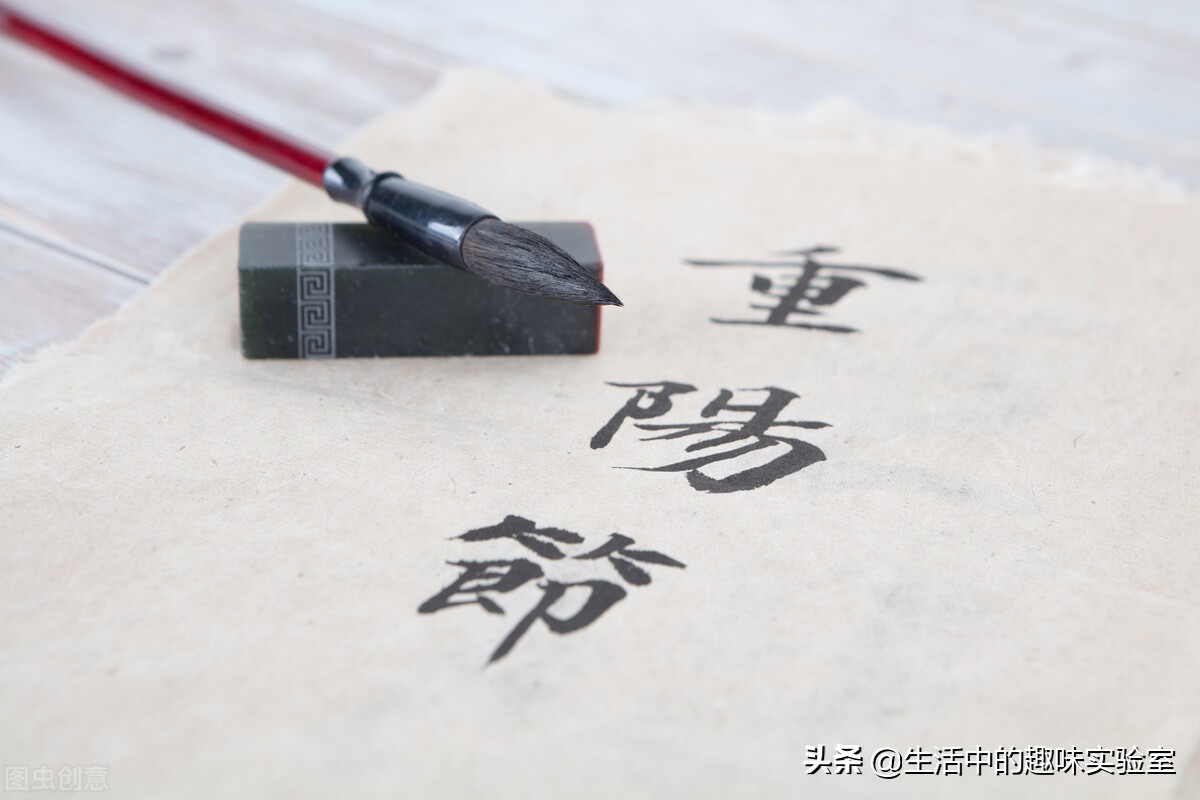 重
陽
節
头条 @生活中的趣味实验室
图虫创意